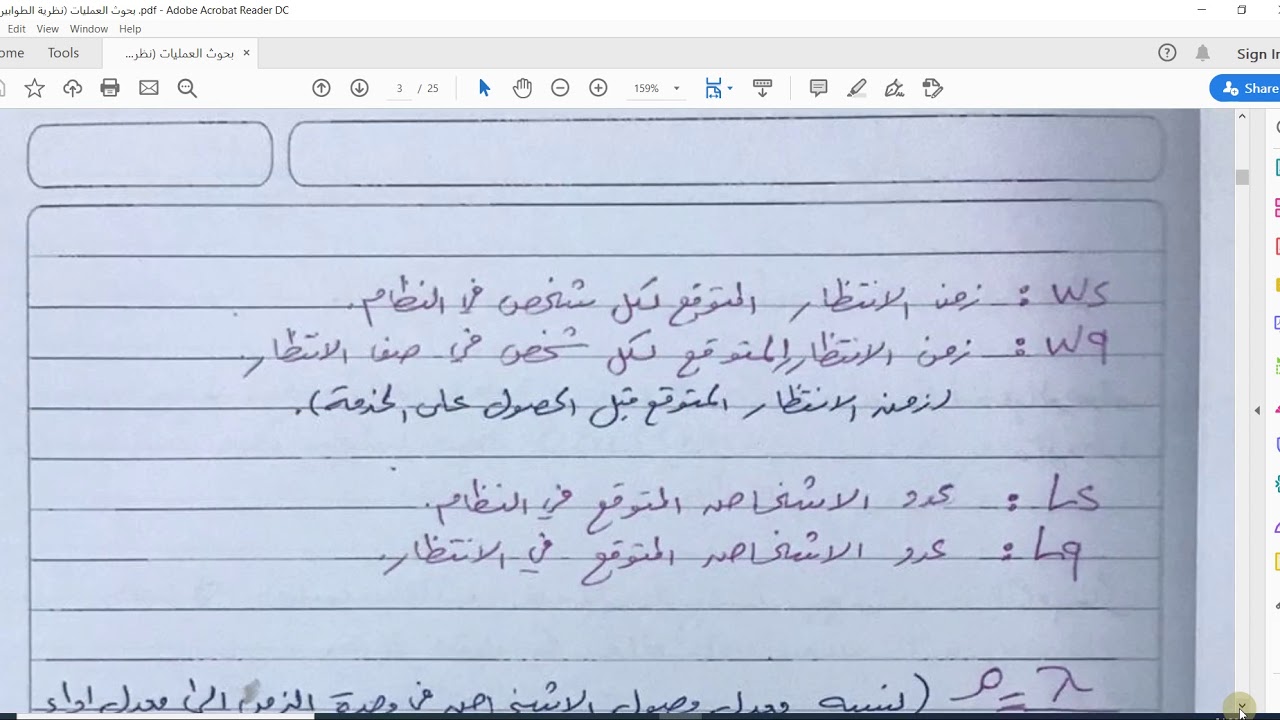 بحوث العمليات (نظرية الطوابير .pdf - Adobe Acrobat Reader DC
Edit View Window Help
ome Tools بحوث العمليات (نظر... × Sign In
3 / 25 159% Share
Ws : زمن الانتظار المتوقع لكل شخص في النظام.
Wq : زمن الانتظار المتوقع لكل شخص في صف الانتظار.
(زمن الانتظار المتوقع قبل الحصول على الخدمة).
Ls : عدد الاشخاص المتوقع في النظام.
Lq : عدد الاشخاص المتوقع في الانتظار.
ρ = λ (نسبة معدل وصول الاشخاص في وحدة الزمن الى معدل اداء